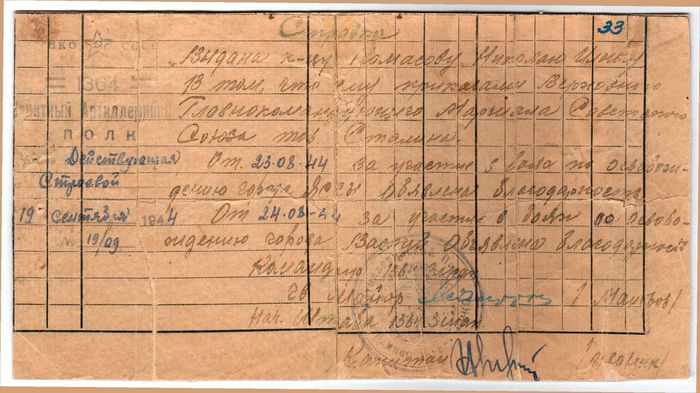 Справка
33
НКО СССР
Выдана к-цу Комасову Николаю
= 1364 =
В том, что ему приказами Верховного
Зенитный Артиллерийский
Главнокомандующего Маршала Советского
ПОЛК
Союза тов. Сталина.
Действующая
От. 23.08.44 за участие в боях по освобож-
Строевой
дению города Яссы объявлена благодарность
19 сентября 1944
От 24.08-44 за участие в боях по освобо-
№ 19/09
ждению города Васлуй объявлена благодарность
Командир 1364 Зенап
Гв Майор
Нач. Штаба 1364 Зенап
Капитан